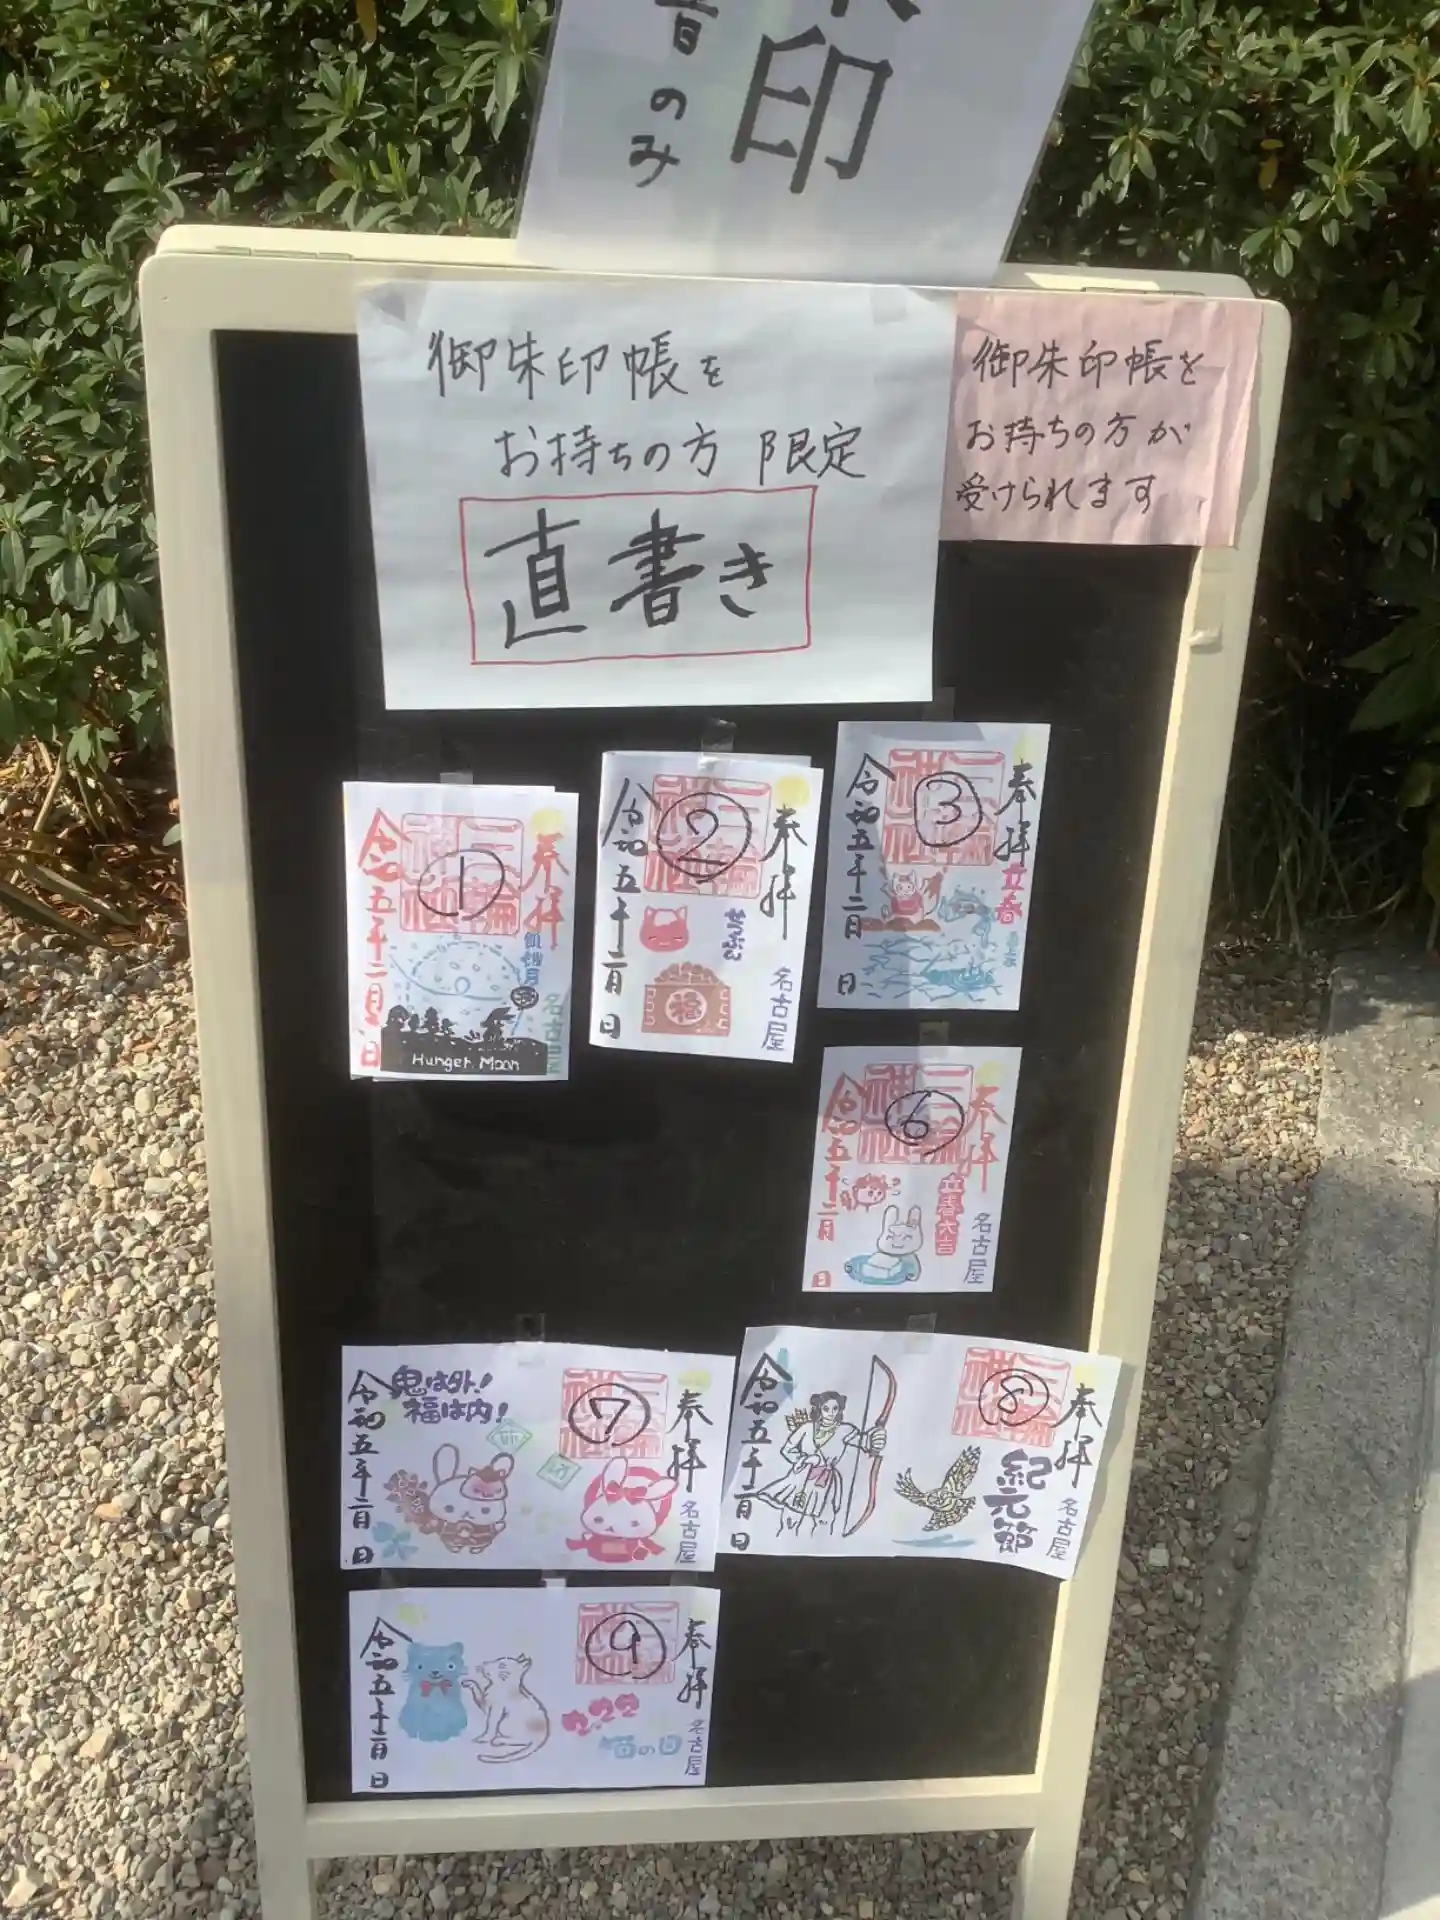 印
のみ
御朱印帳を
お持ちの方 限定
直書き
御朱印帳を
お持ちの方が
受けられます
①
奉拝
三輪神社
令和五年二月 日
名古屋
Hunger Moon
②
奉拝
三輪神社
せつぶん
福
令和五年二月 日
名古屋
③
奉拝
三輪神社
立春
令和五年二月 日
⑥
奉拝
三輪神社
立春大吉
令和五年二月 日
名古屋
⑦
奉拝
三輪神社
鬼は外!
福は内!
令和五年二月 日
名古屋
⑧
奉拝
三輪神社
紀元節
令和五年二月 日
名古屋
⑨
奉拝
三輪神社
2.22
猫の日
令和五年二月 日
名古屋